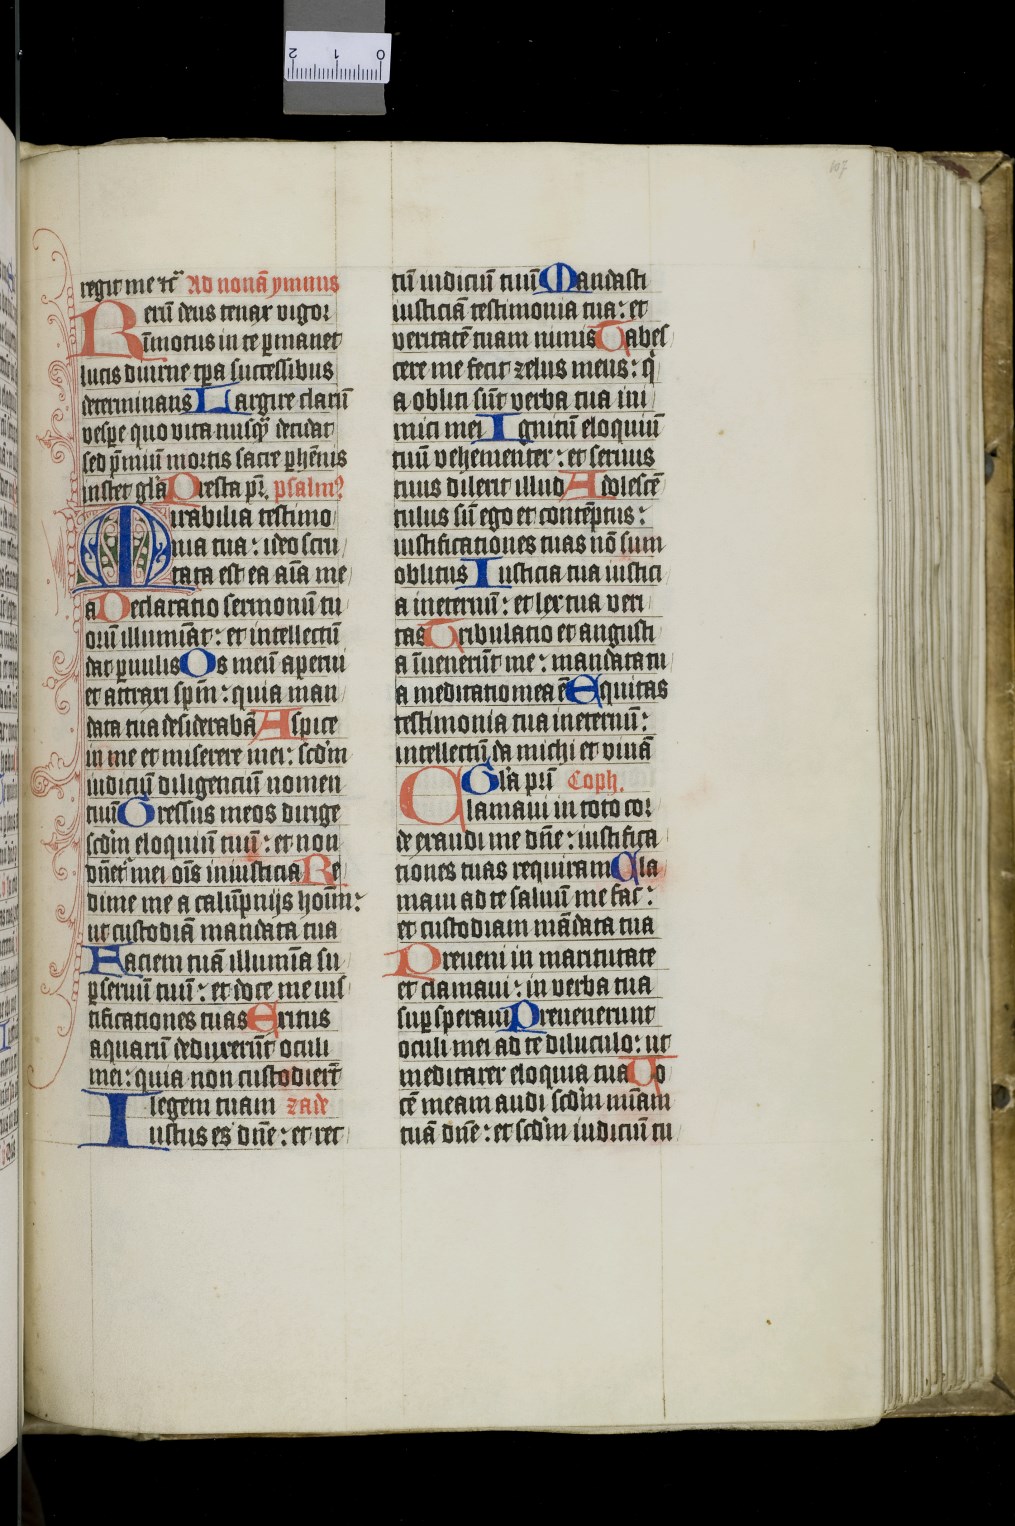 107
regit me etc̃ Ad nonā ymnus
Rerū deus tenax vigor
īmotus in te ꝑmanet
lucis diurne tꝑa successibus
determinans Largire clarū
vespe quo vita nusqȝ decidat
sed p̄miū mortis sacre ꝑhēnis
instet glā Presta pr̄. psalmꝰ
Mirabilia testimo
nia tua : ideo scru
tata est ea aīa me
a Declaratio sermonū tu
orū illumīat : et intellectū
dat ꝑuulis Os meū aperui
et attraxi spm̄ : quia man
data tua desiderabā Aspice
in me et miserere mei : scd̄m
iudiciū diligenciū nomen
tuū Gressus meos dirige
scd̄m eloquiū tuū : et non
dn̄et᷑ mei oīs iniusticia Re
dime me a calūpnijs hoīm :
ut custodiā mandata tua
Faciem tuā illumīa su
ꝑ seruū tuū : et doce me ius
tificationes tuas Exitus
aquarū deduxerūt oculi
mei : quia non custodierт̄
legem tuam zade
Iustus es dn̄e : et rec
tū iudiciū tuū Mandasti
iusticiā testimonia tua : et
veritatē tuam nimis Tabes
cere me fecit zelus meus : q̇
a obliti sūt verba tua ini
mici mei Ignitū eloquiū
tuū vehementer : et seruus
tuus dilexit illud Adolescē
tulus sū ego et contēptus :
iustificationes tuas nō sum
oblitus Iusticia tua iustici
a ineternū : et lex tua veri
tas Tribulatio et angusti
a īuenerūt me : mandata tu
a meditatio mea ē Equitas
testimonia tua ineternū :
intellectū da michi et viuā
Glā pr̄ii Coph.
Clamaui in toto cor
de exaudi me dn̄e : iustifica
tiones tuas requiram Cla
maui ad te saluū me fac :
et custodiam mādata tua
Preueni in maritutate
et clamaui : in verba tua
suꝑ speraui Preuenerunt
oculi mei ad te diluculo : ut
meditarer eloquia tua Vo
cē meam audi scd̄m mīam
tuā dn̄e : et scd̄m iudiciū tu
2 1 0